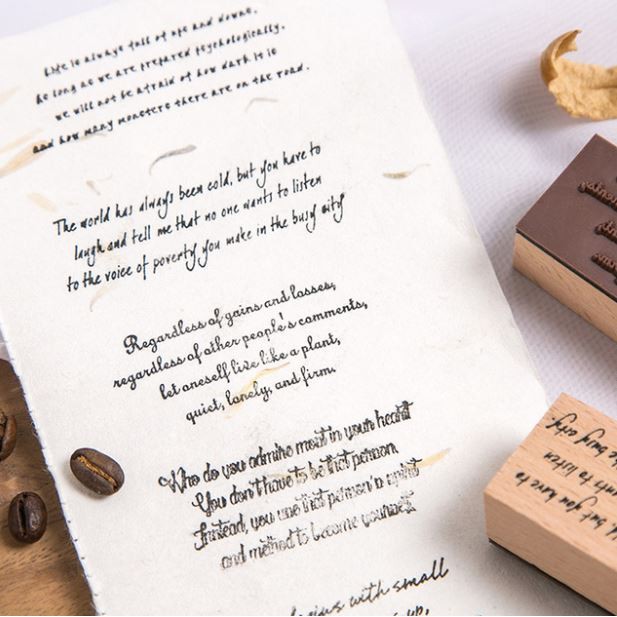 Life is always full of ups and downs,
As long as we are prepared psychologically,
we will not be afraid of how dark it is
and how many monsters there are on the road.
The world has always been cold, but you have to
laugh and tell me that no one wants to listen
to the voice of poverty you make in the busy city
Regardless of gains and losses,
regardless of other people's comments,
let oneself live like a plant,
quiet, lonely, and firm.
Who do you admire most in your heart
You don't have to be that person,
Instead, you use that person's spirit
and method to become yourself.
with small
up,
but you have to
to listen
busy city.